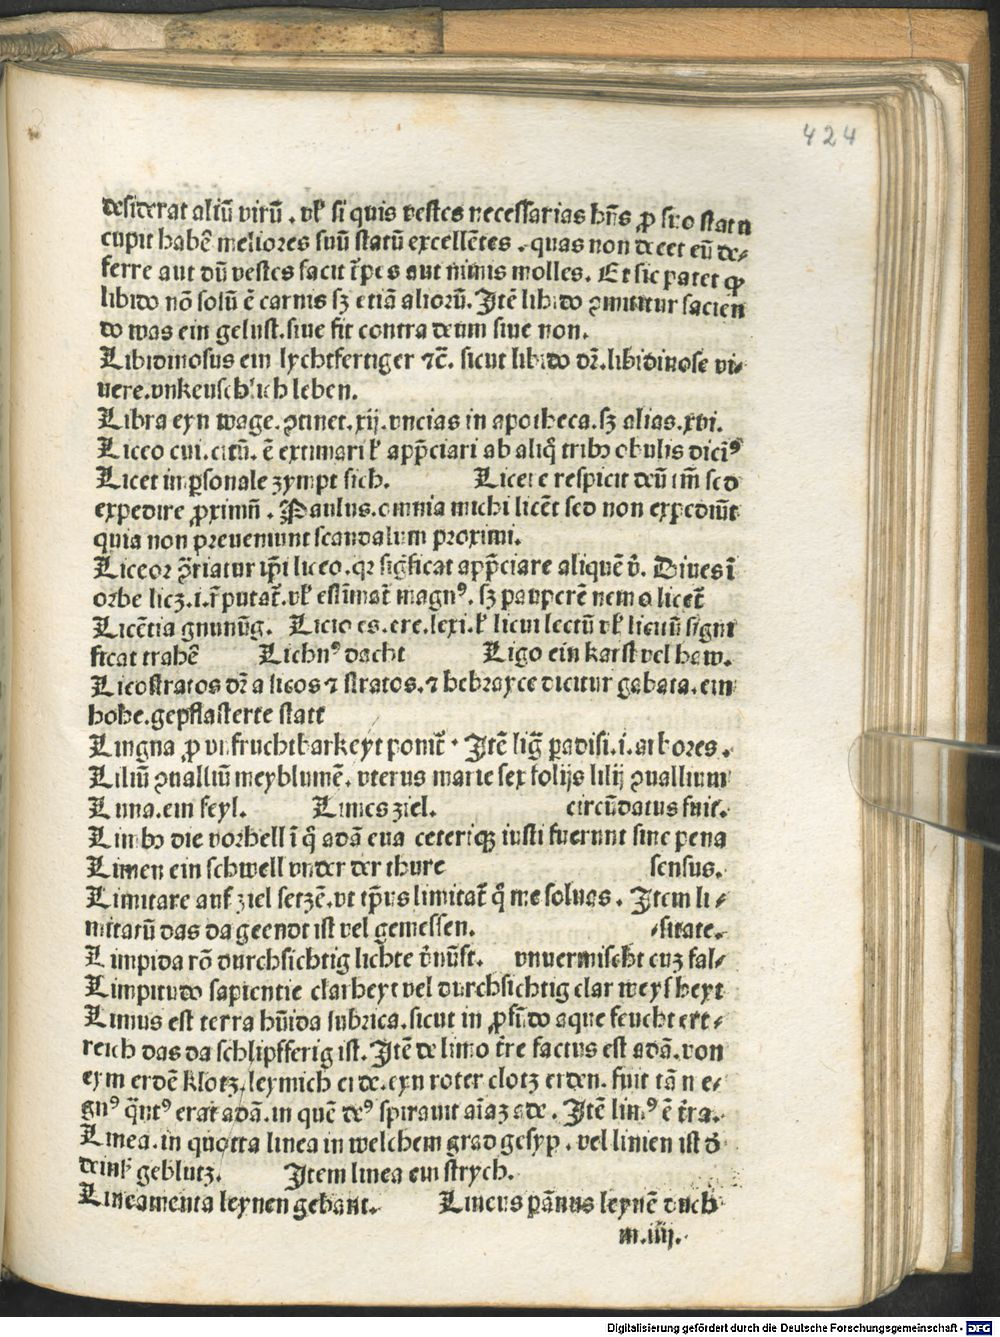 424
desiderat aliū virū . vl' si quis vestes necessarias hn̄s ꝓ suo statu
cupit habē meliores suū statū excellētes . quas non decet eū de⸗
ferre aut dū vestes facit nimis molles. Et sic patet ꝙ
libido nō solū ē carnis sꝫ etiā aliorū. Itē libido ꝯmittitur facien
do was ein gelust. siue fit contra deum siue non.
Libidinosus ein lychtfertiger ⁊c̄. sicut libido dr̄. libidinose vi⸗
uere. vnkeuschlich leben.
Libra eyn wage. ꝯtinet. xij. vncias in apotheca. sꝫ alias. xvi.
Liceo cui. citū. ē extimari l' app̄ciari ab aliq̄ tribꝫ obulis
Licet imꝑsonale zympt sich. Licere respicit deū im̄ sed
expedire ꝓximū . Paulus. omnia michi licēt sed non expediūt
quia non preueniunt scandalum proximi.
Liceor app̄ciare aliquē Diues ī
orbe licꝫ. i. magnꝰ. sꝫ pauperē nemo licet̄
Licētia Licio es. ere. lexi. l' licui lectū vl' licitū signi
ficat trahē Lichnꝰ dacht Ligo ein karst vel haw.
Licostratos dr̄ a licos ⁊ stratos. ⁊ hebrayce dicitur gabata. ein
hohe. gepflasterte statt
Lingua ꝓ vnfruchtbarkeyt ponit̄ . Itē liḡ paradisi. i. arbores .
Liliū ꝯualliū meyblumē. vterus marie sex folijs lilij ꝯuallium
Lima. ein feyl. Limes ziel. circūdatus fuit.
Limbꝫ die vorhell ī q̄ adā eua ceteriqꝫ iusti fuerunt sine pena
Limen ein schwell vnder der thure sensus.
Limitare auf ziel setzē. vt tp̄us limitat̄ q̄ me soluas . Item li⸗
mitatū das da geendt ist vel gemessen. ⸗sitate.
Limpida rō durchsichtig lichte v̄nūft. vnuermischt cuꝫ fal⸗
Limpitudo sapientie clarheyt vel durchsichtig clar weyßheyt
Limus est terra hūida lubrica. sicut in ꝓfūdo aque feucht ert⸗
reich das da schlipfferig ist. Itē de limo tr̄e factus est adā. von
eym erdē klotz. leymich erde. eyn roter clotz erden. fuit tā n e⸗
gnꝰ q̄ntꝰ erat adā. in quē deꝰ spirauit aīaꝫ ade . Itē limꝰ ē tr̄a.
Linea. in quotta linea in welchem grad gesyp . vel linien ist
geblutz. Item linea ein strych.
Lineamenta leynen gebant. Lineus pānus leynē duch
m.iiij.
Digitalisierung gefördert durch die Deutsche Forschungsgemeinschaft - DFG